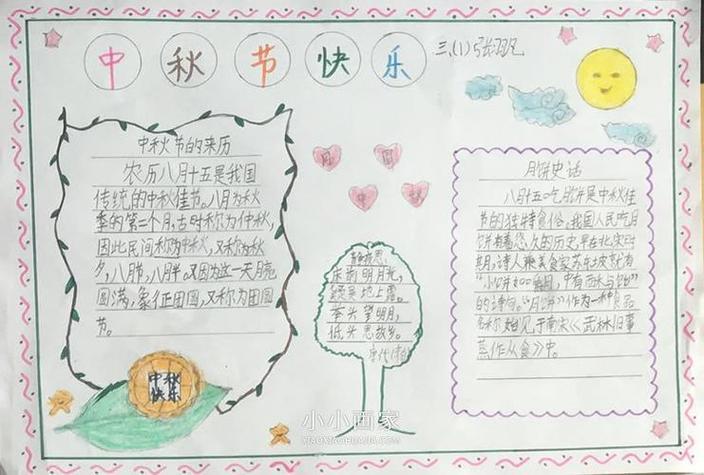 中秋节快乐
三、(1)
中秋节的来历
农历八月十五是我国
传统的中秋佳节。八月为秋
季的第二个月,古时称为仲秋,
因此民间称为中秋,又称为秋
夕,八月节,八月半。又因为这一天月亮
圆满,象征团圆,又称为团圆
节。
中秋
快乐
月 圆
中 秋
静夜思
床前明月光,
疑是地上霜。
举头望明月,
低头思故乡。
唐代
月饼史话
八月十五吃月饼是中秋佳
节的独特食俗。我国人民吃月
饼有着悠久的历史。早在北宋时
期,诗人兼美食家苏东坡就有
"小饼如嚼月,中有酥与饴"
的诗句。"月饼"作为一种食品
名称始见于南宋《武林旧事
蒸作从食》中。
小小画家
XIAOXIAOHUAJIA.COM